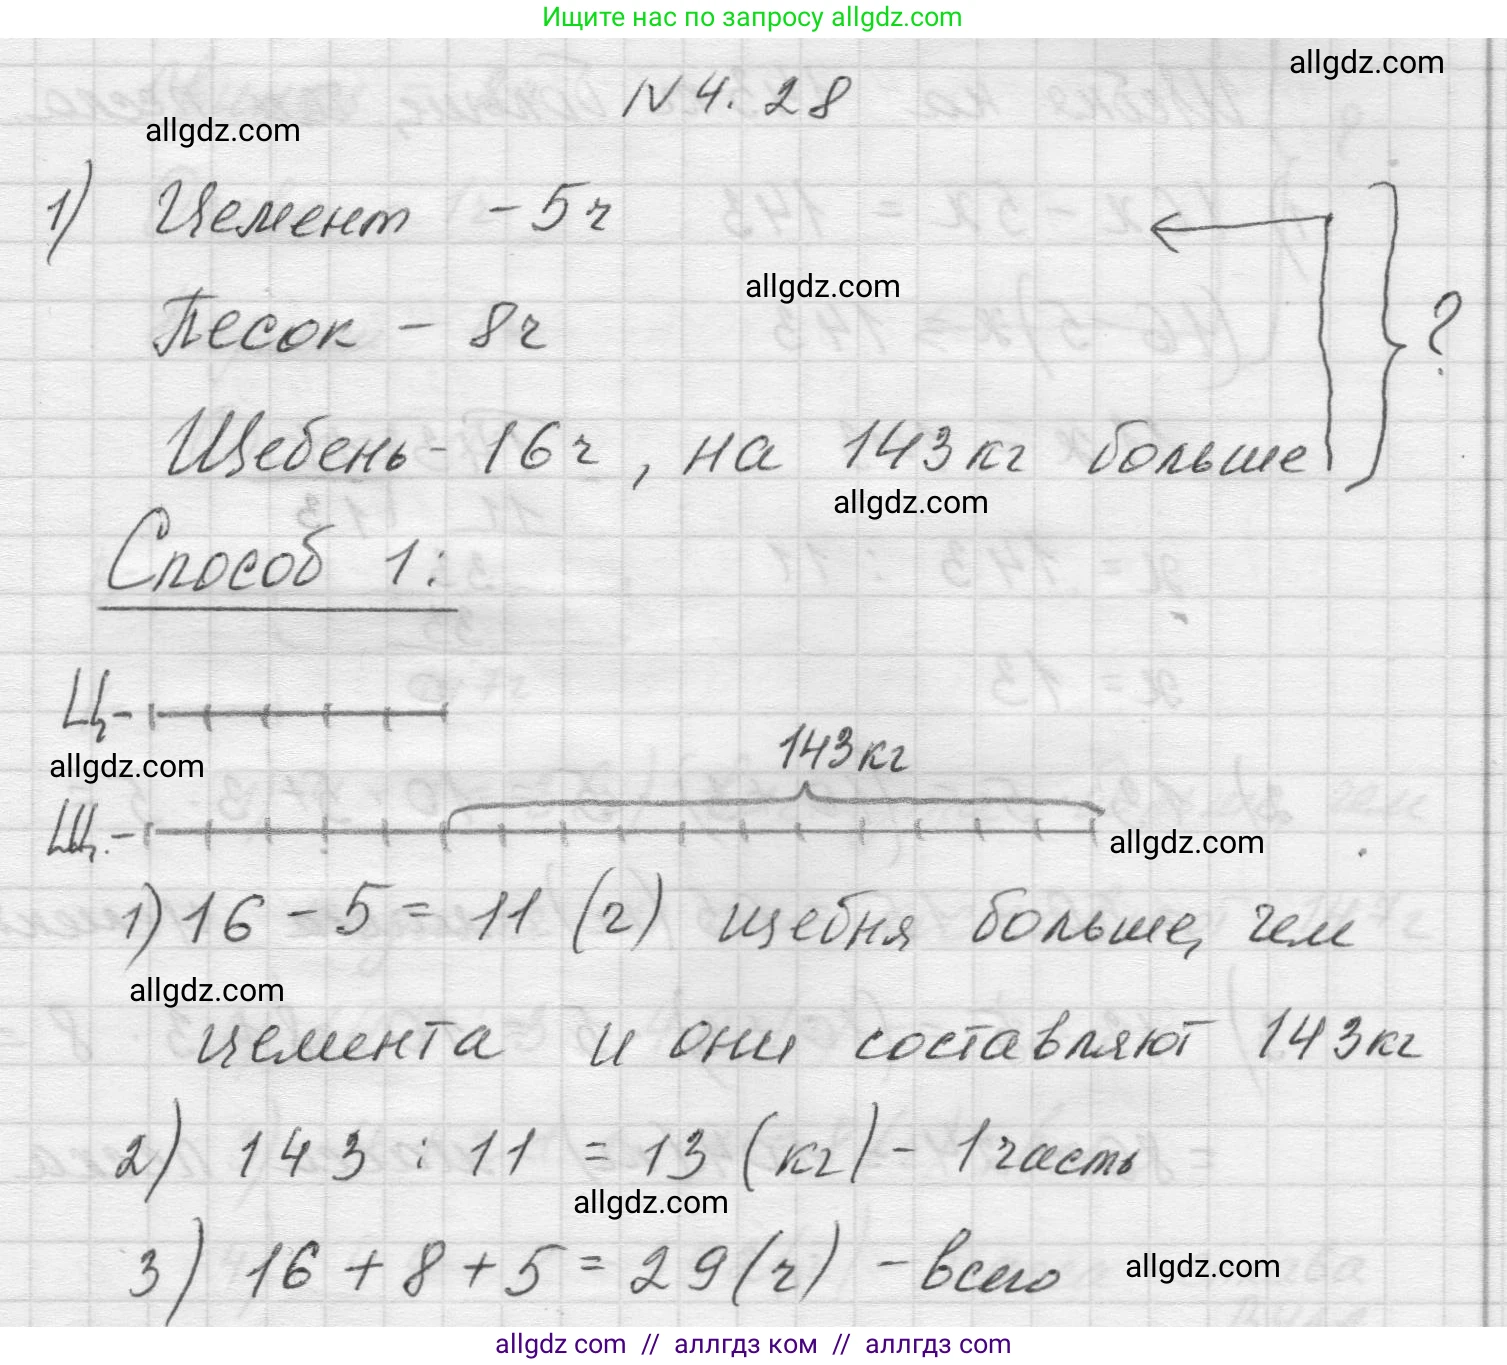 Ищите нас по запросу allgdz.com
allgdz.com
N 4.28
allgdz.com
1) Цемент - 5ч
allgdz.com
Песок - 8ч
?
Щебень - 16ч, на 143кг больше
allgdz.com
Способ 1:
Ц -
143кг
allgdz.com
Щ. -
allgdz.com
1) 16 - 5 = 11 (ч) щебня больше, чем
allgdz.com
цемента и они составляют 143кг
2) 143 : 11 = 13 (кг) - 1 часть
allgdz.com
3) 16 + 8 + 5 = 29 (ч) - всего
allgdz.com
allgdz com // аллгдз ком // аллгдз com